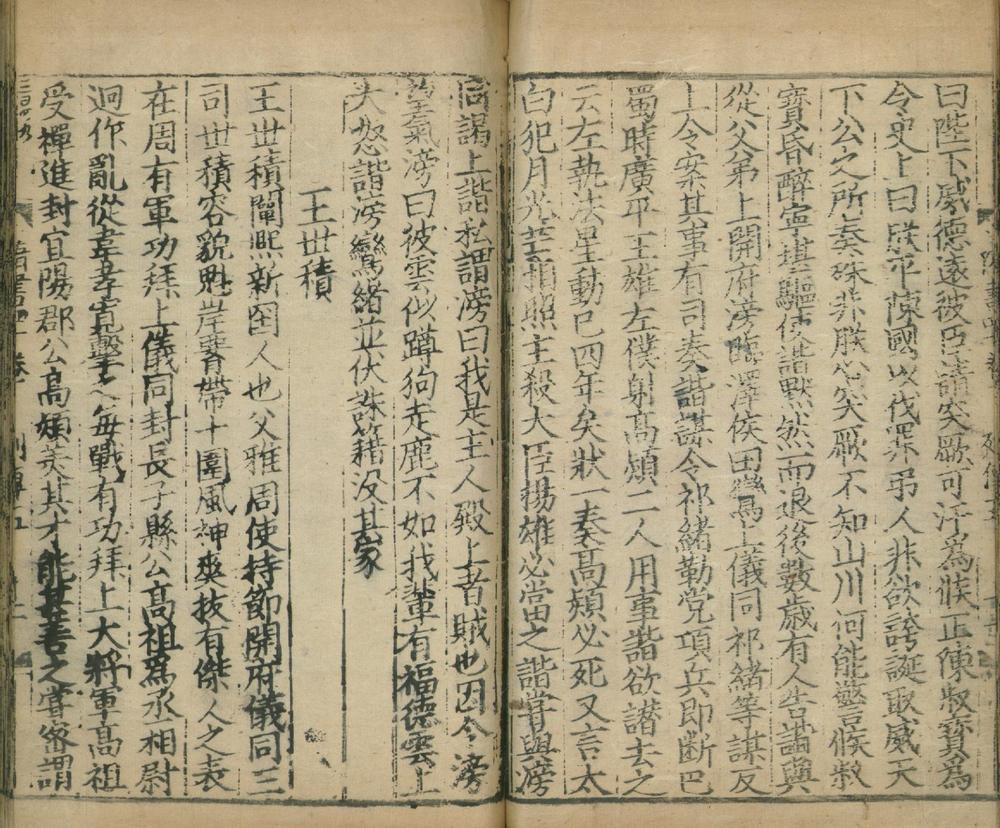 曰陛下威德遠被臣請突厥可汗爲候正陳叔寶爲
令史上曰朕平陳國以伐罪弔人非欲誇誕取威天
下公之所奏殊非朕心突厥不知山川何能警候叔
寶昏醉寧堪驅使諧默然而退後數歲有人告諧與
從父弟上開府滂臨澤侯田鸞上儀同祁緒等謀反
上令案其事有司奏諧謀令祁緒勒党項兵即斷巴
蜀時廣平王雄左僕射髙熲二人用事諧欲譖去之
云左執法星動已四年矣狀一奏髙熲必死又言太
白犯月光芒相照主殺大臣楊雄必當之諧嘗與滂
同謁上諧私謂滂曰我是主人殿上者賊也因令滂
望氣滂曰彼雲似蹲狗走鹿不如我輩有福德雲上
大怒諧滂鸞緒並伏誅籍没其家
王世積
王世積闡熈新囶人也父雅周使持節開府儀同三
司世積容貌魁岸腰帶十圍風神爽拔有傑人之表
在周有軍功拜上儀同封長子縣公髙祖爲丞相尉
迥作亂從韋孝寛擊之每戰有功拜上大將軍髙祖
受禪進封宜陽郡公髙熲美其才能甚善之嘗密謂